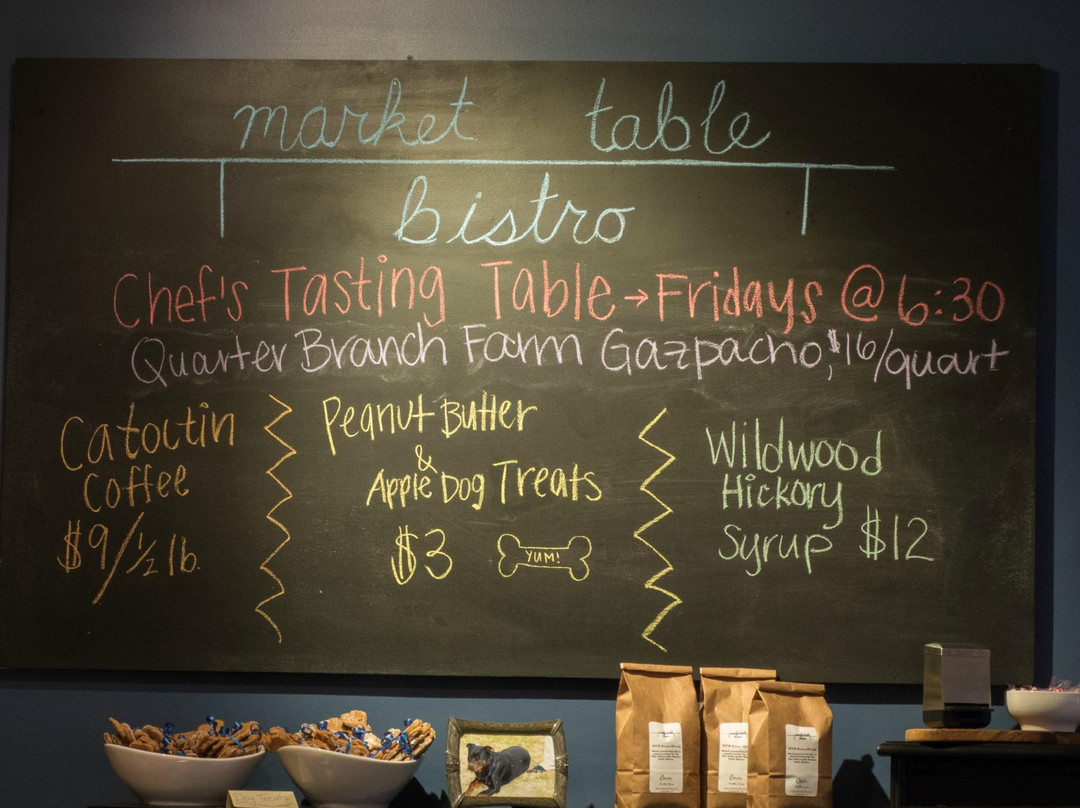 market table
bistro
Chef's Tasting Table → Fridays @ 6:30
Quarter Branch Farm Gazpacho, $16/quart
Catoctin
Coffee
$9/½ lb.
Peanut Butter
&
Apple Dog Treats
$3
YUM!
Wildwood
Hickory
Syrup $12
Dog Treats